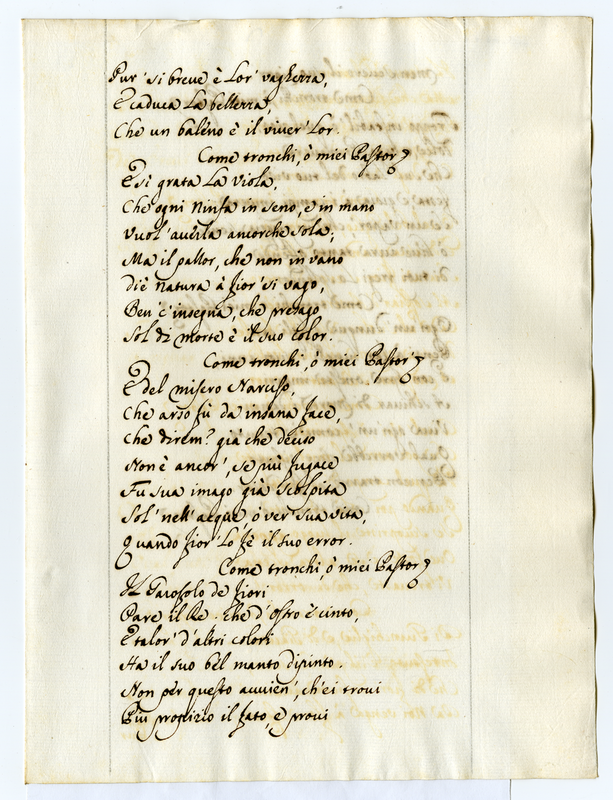 Pur' si breue è Lor' vaghezza,
E caduca La bellezza,
Che un baleno è il viuer' Lor.
Come tronchi, ò miei Pastor &
E sì grata La Viola,
Che ogni Ninfa in seno, e in mano
Vuol' auerla ancorche sola;
Ma il pallor, che non in vano
diè Natura à fior' si vago,
Ben' c'insegna, che presago
Sol di morte è il suo color.
Come tronchi, ò miei Pastor' &
E del misero Narciso,
Che arso fù da insana face,
Che direm? già che deciso
Non è ancor', se più fugace
Fu sua imago già scolpita
Sol' nell' acque, ò ver' sua vita,
Quando fior' Lo fè il suo error.
Come tronchi, ò miei Pastor &
Il Garofolo de fiori
Pare il Re. che d'Ostro è cinto,
E talor' d'altri colori
Ha il suo bel manto dipinto.
Non per questo auuien', ch'ei troui
Più propizio il fato, e proui